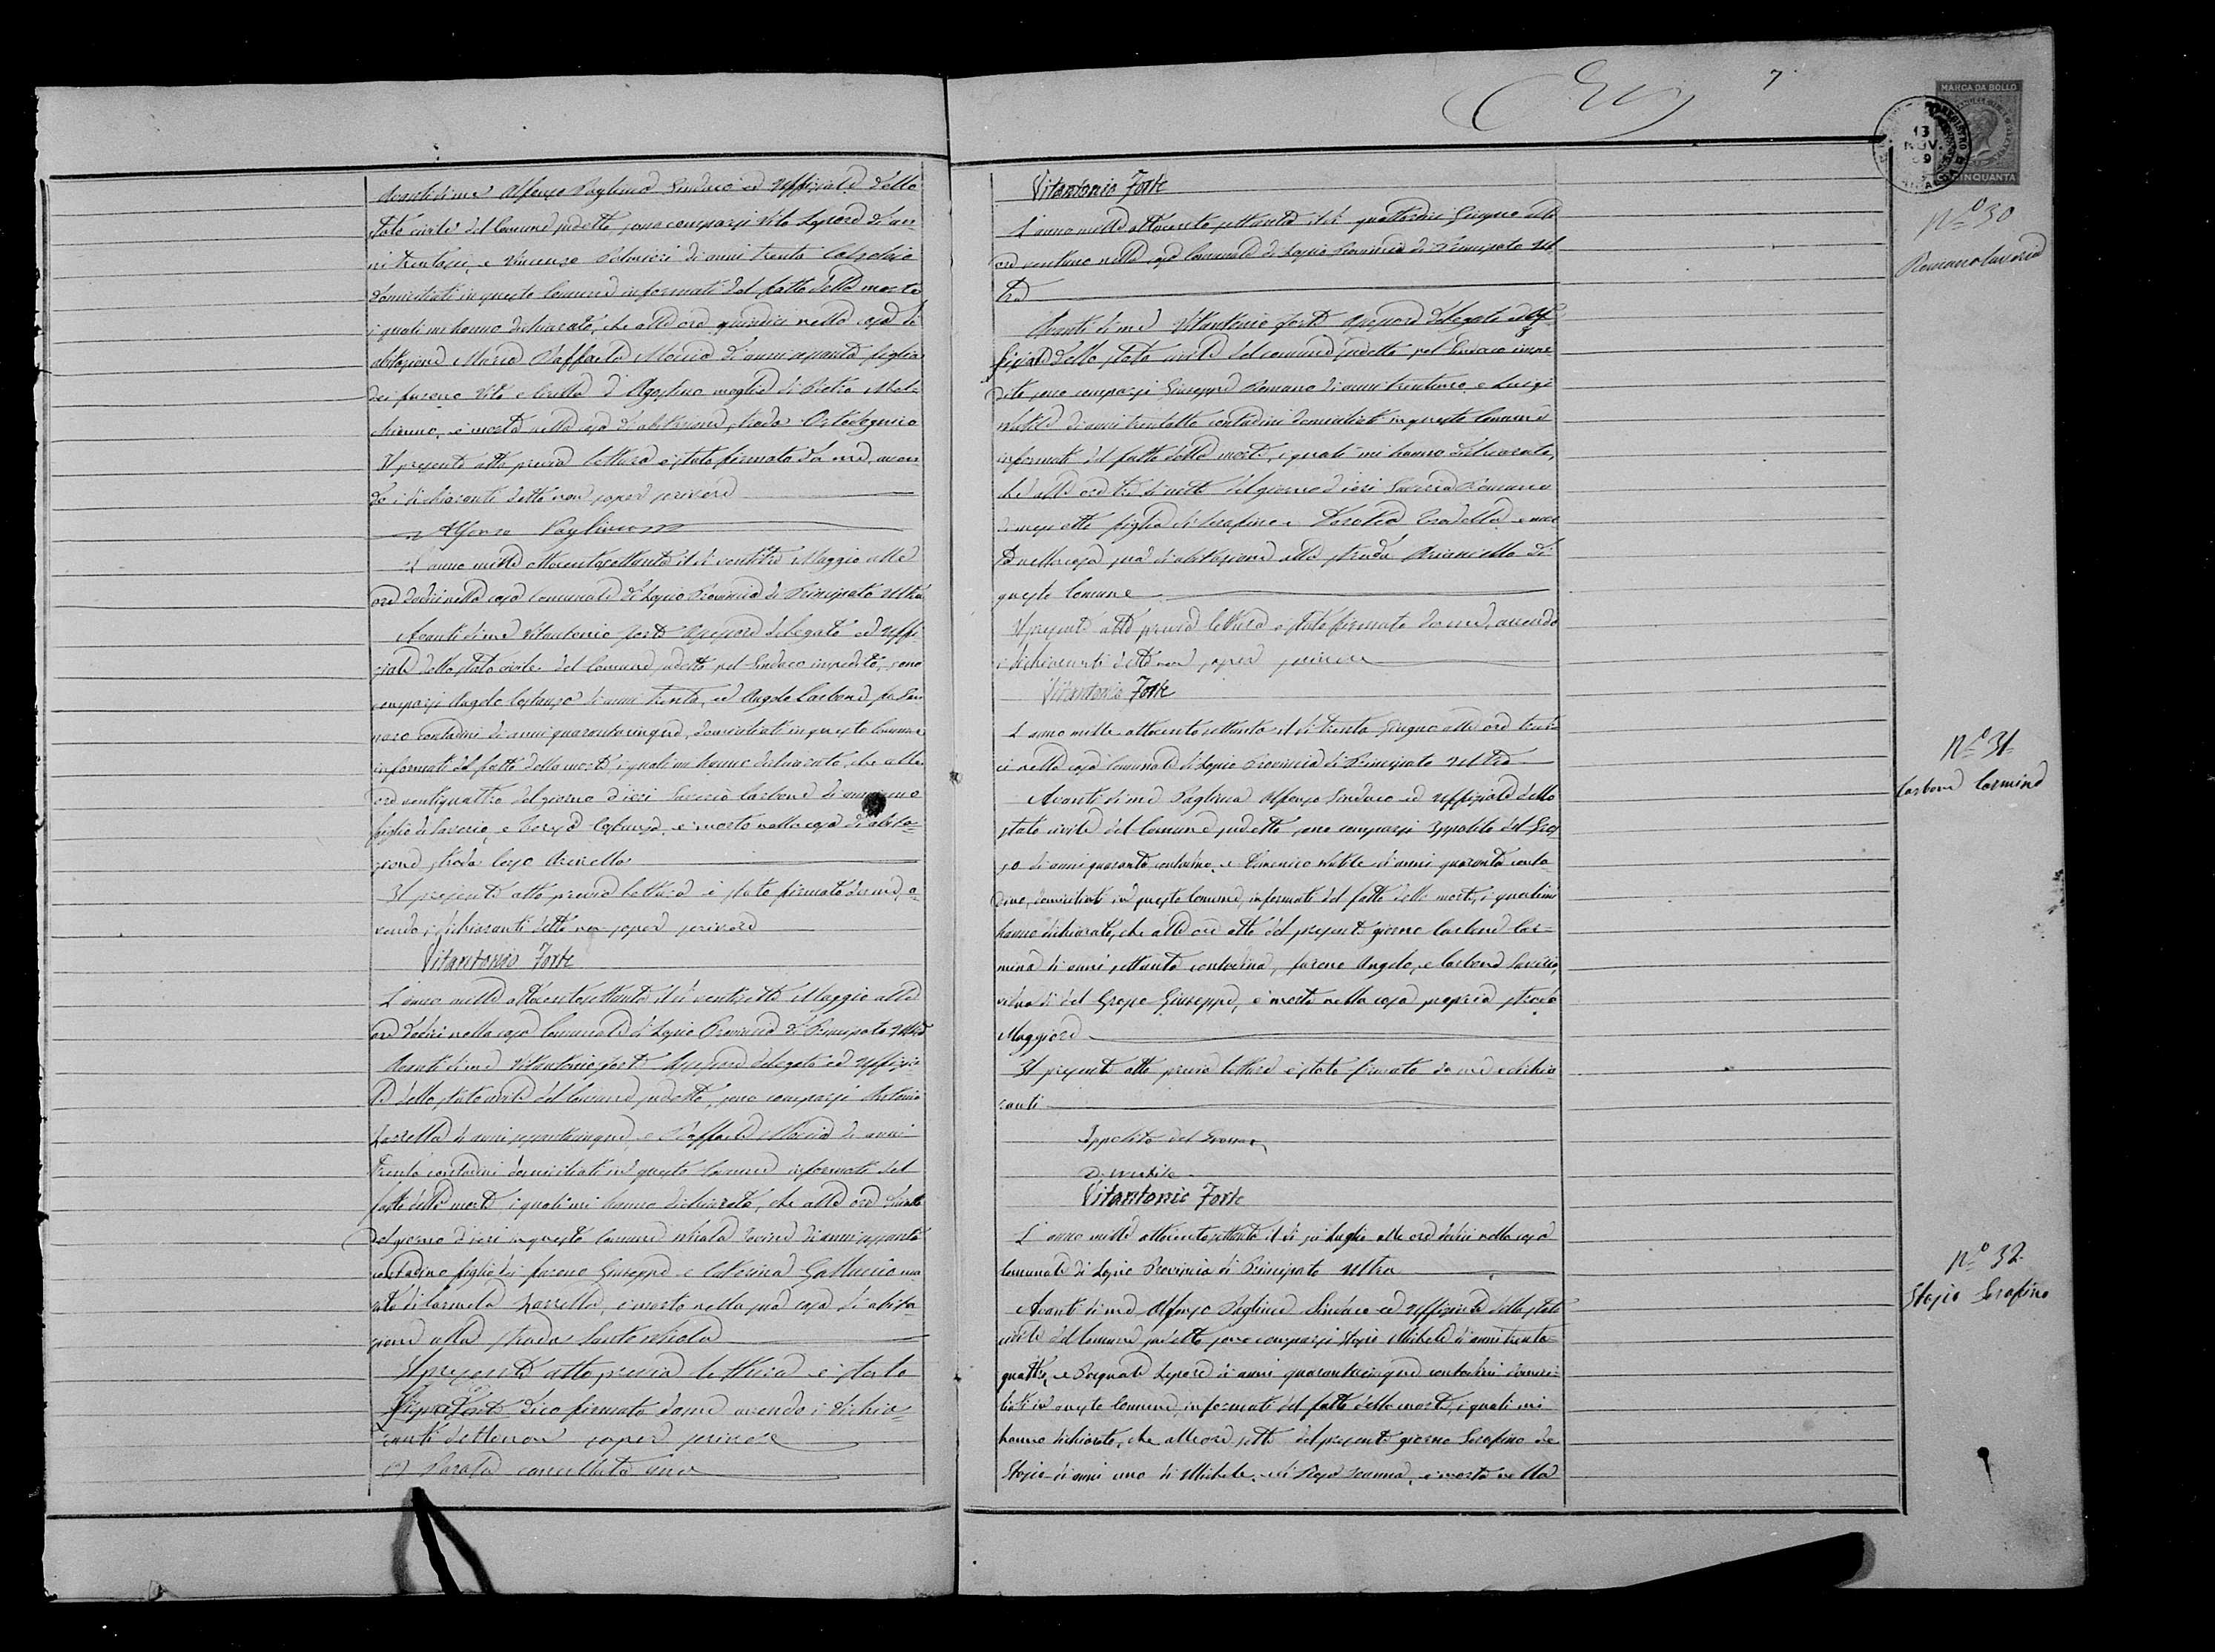 Avanti di me Alfonso Pagliuca Sindaco ed Uffiziale dello
Stato civile del Comune sudetto sono comparsi Vito Lepore d'an-
ni trentasei, e Vincenzo Palmieri di anni trenta Calzolaio
domiciliati in questo Comune informati del fatto della morte
i quali mi hanno dichiarato, che alle ore quindici nella casa di
abitazione Maria Raffaela Moccia di anni sessanta figlia
dei furono Vito e Civita d'Agostino moglie di Pietro Mel-
chionno, è morta nella casa d'abitazione strada
Il presente atto previa lettura è stato firmato da me, aven-
do i dichiaranti detto non saper scrivere
Alfonso Pagliuca
L'anno mille ottocentosettanta il dì ventitre Maggio alle
ore dodici nella casa Comunale di Lapio Provincia di Principato Ultra
Avanti di me Vitantonio Forte Assessore delegato ed Uffi-
ziale dello stato civile del Comune sudetto pel Sindaco impedito, sono
comparsi Angelo Costanzo di anni trenta, ed Angelo Carbone fu Gen-
naro contadini di anni quarantacinque, domiciliati in questo Comune
informati del fatto della morte, i quali mi hanno dichiarato, che alle
ore ventiquattro del giorno d'ieri Saverio Carbone di anni uno
figlio di Saverio, e Teresa Costanza, è morto nella casa di abita-
zione strada Largo Arenella
Il presente atto previa lettura è stato firmato da me, a-
vendo i dichiaranti detto non saper scrivere
Vitantonio Forte
L'anno mille ottocentosettanta il dì ventisette Maggio alle
ore dodici nella casa Comunale di Lapio Provincia di Principato Ultra
Avanti di me Vitantonio Forte Assessore delegato ed Uffizia-
le dello stato civile del Comune sudetto, sono comparsi Antonio
Zarrella di anni sessantacinque, e Raffaele Moccia di anni
trenta contadini domiciliati in questo Comune informati del
fatto della morte i quali mi hanno dichiarato, che alle ore
del giorno d'ieri in questo Comune di anni sessanta
contadino figlio dei furono Giuseppe e Caterina Galluccio ma-
rito di Carmela Zarrella, è morto nella sua casa di abita-
zione alla strada Santo Nicola
Il presente atto previa lettura è stato
dico firmato da me avendo i dichia-
ranti detto non saper scrivere
Parola cancellata una
7
MARCA DA BOLLO
C. CINQUANTA
13
NOV.
69
Vitantonio Forte
L'anno mille ottocento settanta il dì quattordici Giugno alle
ore ventuno nella casa Comunale di Lapio Provincia di Principato Ul-
tra
Avanti di me Vitantonio Forte Assessore delegato ed Uf-
fiziale dello stato civile del comune sudetto pel Sindaco impe-
dito sono comparsi Giuseppe Romano di anni trentuno, e Luigi
di anni trentotto contadini domiciliati in questo Comune
informati del fatto della morte, i quali mi hanno dichiarato,
che alle ore tre di notte del giorno d'ieri Saveria Romano
di mesi otto figlia di Serafino e Dorotea è mor-
ta nella casa sua di abitazione alla strada Arianiello di
questo Comune
Il presente atto previa lettura è stato firmato da me, avendo
i dichiaranti detto non saper scrivere
Vitantonio Forte
L'anno mille ottocento settanta il dì trenta Giugno alle ore tredi-
ci nella casa Comunale di Lapio Provincia di Principato Ultra
Avanti di me Pagliuca Alfonso Sindaco ed Uffiziale dello
stato civile del Comune sudetto sono comparsi Ippolito del Gros-
so di anni quaranta contadino, e Domenico di anni quaranta conta-
dino, domiciliati in questo Comune, informati del fatto della morte, i quali mi
hanno dichiarato, che alle ore otto del presente giorno Carbone Car-
mina di anni settanta contadina, furono Angelo, e Carbone Saveria,
vedova di del Grosso Giuseppe, è morta nella casa propria strada
Maggiore
Il presente atto previa lettura è stato firmato da me e dichia-
ranti
Ippolito del Grosso
Vitantonio Forte
L'anno mille ottocento settanta il dì sei Luglio alle ore dodici nella casa
Comunale di Lapio Provincia di Principato Ultra
Avanti di me Alfonso Pagliuca Sindaco ed Uffiziale dello stato
civile del Comune sudetto sono comparsi Stojio Michele di anni trenta-
quattro, e Pasquale Lepore di anni quarantacinque contadini domici-
liati in questo Comune, informati del fatto della morte, i quali mi
hanno dichiarato, che alle ore sette del presente giorno Serafino de
Stojio di anni uno di Michele, e di Rosa Ioanna, è morto nella
N.º 30
Romano Saveria
N.º 31
Carbone Carmina
N.º 32
Stojio Serafino